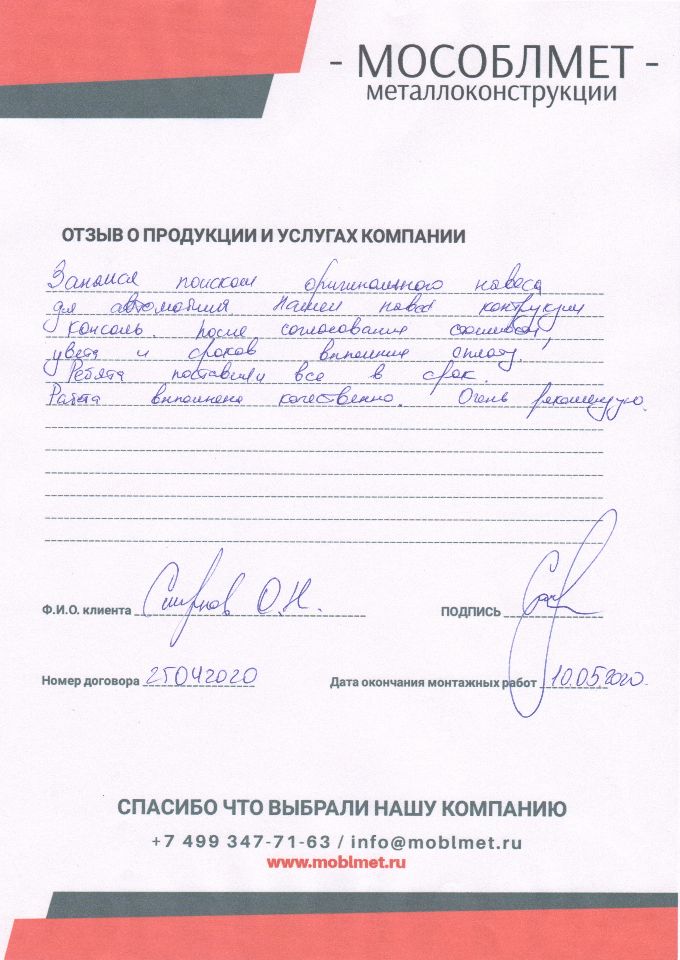 - МОСОБЛМЕТ -
металлоконструкции
ОТЗЫВ О ПРОДУКЦИИ И УСЛУГАХ КОМПАНИИ
Занимся поиском оригинального навеса
для автомобиля Нашел навес
консоль. после согласования
цвета и сроков оплату.
Ребята поставили все в срок.
Работа выполнена качественно. Очень рекомендую.
Ф.И.О. клиента Смирнов О.Н. ПОДПИСЬ
Номер договора 25042020 Дата окончания монтажных работ 10.05.2020.
СПАСИБО ЧТО ВЫБРАЛИ НАШУ КОМПАНИЮ
+7 499 347-71-63 / info@moblmet.ru
www.moblmet.ru